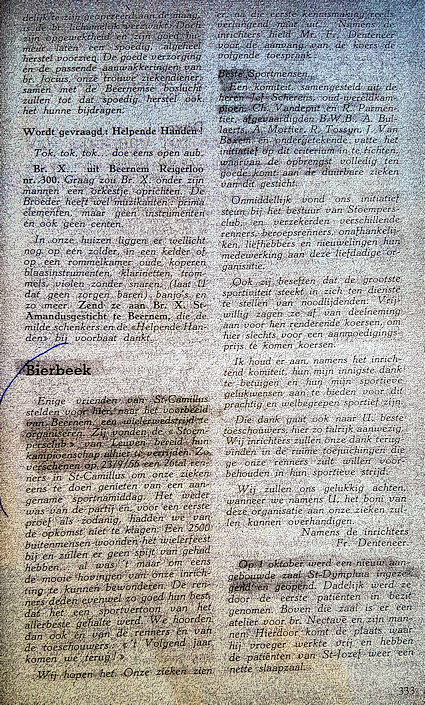 delijk te zijn geopereerd aan de maag,
zijn opgewektheid en zijn goed hu-
meur laten een spoedig, algeheel
herstel voorzien. De goede verzorging
en de passende aanwakkeringen van
br. Jocus, onze trouwe ziekendiener
samen met de Beernemse boslucht
zullen tot dat spoedig herstel ook
het hunne bijdragen.
Wordt gevraagd : Helpende Handen !
Tok, tok, tok... doe eens open aub.
Br. X. uit Beernem Reigerloo
nr. 300. Graag zou Br. X. onder zijn
mannen een orkestje oprichten. De
Broeder heeft wel muzikanten, prima
elementen, maar geen instrumenten
en ook geen centen.
In onze huizen liggen er wellicht
nog op een zolder, in een kelder of
op een rommelkamer oude, koperen
blaasinstrumenten, klarinetten, trom-
mels, violen zonder snaren, (laat U
dat geen zorgen baren), banjo's en
zo meer. Zend ze aan Br. X. St-
Amandusgesticht te Beernem, die de
milde schenkers en de «Helpende Han-
den» bij voorbaat dankt.
Bierbeek
Enige vrienden van St-Camillus
stelden voor hier, naar het voorbeeld
van Beernem, een wielerwedstrijd te
organizeren. Zij vonden de « Stoem-
persclub » van Leuven bereid hun
kampioenschap alhier te verrijden. Zo
verschenen op 23/9/66 een 20tal ren-
ners in St-Camillus om onze zieken
eens te doen genieten van een aan-
gename sportnamiddag. Het weder
was van de partij en, voor een eerste
proef als zodanig, hadden we van
de opkomst niet te klagen. Een 2500
buitenmensen woonden het wielerfeest
bij en zullen er geen spijt van gehad
hebben... al was 't maar om eens
de mooie hovingen van onze inrich-
ting te kunnen bewonderen. De ren-
ners deden evenwel zo goed hun best,
dat het een sportvertoon van het
allerbeste gehalte werd. We hoorden
dan ook en van de renners en van
de toeschouwers : « ! Volgend jaar
komen we terug ! »
Wij hopen het. Onze zieken zien
er, na die eerste kennismaking reeds
verlangend naar uit. Namens de
inrichters hield Mr. Fr. Denteneer
voor de aanvang van de koers de
volgende toespraak :
Beste Sportmensen,
Een komiteit, samengesteld uit de
heren Jef Scherens, oud-wereldkam-
pioen, Ch. Vandenput en R. Parmen-
tier, afgevaardigden B.W.B., A. Bul-
laerts, A. Mortier, R. Tossyn, J. Van
Boxem en ondergetekende, vatte het
initiatief op dit criterium in te richten,
waarvan de opbrengst volledig ten
goede komt aan de duurbare zieken
van dit gesticht.
Onmiddellijk vond ons initiatief
steun bij het bestuur van Stoempers-
club, en verzekerden verschillende
renners, beroepsrenners, onafhankelij-
ken, liefhebbers en nieuwelingen hun
medewerking aan deze liefdadige or-
ganisatie.
Ook zij beseffen dat de grootste
sportiviteit steekt in zich ten dienste
te stellen van noodlijdenden. Vrij-
willig zagen ze af van deelneming
aan voor hen renderende koersen, om
hier slechts voor een aanmoedigings-
prijs te komen koersen.
Ik houd er aan, namens het inrich-
tend komiteit, hun mijn innigste dank
te betuigen en hun mijn sportieve
gelukwensen aan te bieden voor dit
prachtig en welbegrepen sportief zijn.
Die dank gaat ook naar U, beste
toeschouwers, hier zo talrijk aanwezig.
Wij inrichters zullen onze dank terug
vinden in de ruime toejuichingen die
ge onze renners zult willen voor-
behouden in hun sportieve strijd.
Wij zullen ons gelukkig achten,
wanneer we namens U, het boni van
deze organisatie aan onze zieken zul-
len kunnen overhandigen.
Namens de inrichters
Fr. Denteneer
Op 1 oktober werd een nieuw aan-
gebouwde zaal St-Dymphna ingezeg-
gend en geopend. Dadelijk werd ze
door de eerste patiënten in bezit
genomen. Boven die zaal is er een
atelier voor br. Nectave en zijn man-
nen. Hierdoor komt de plaats waar
hij vroeger werkte vrij en hebben
de patiënten van St-Jozef weer een
nette slaapzaal.
333